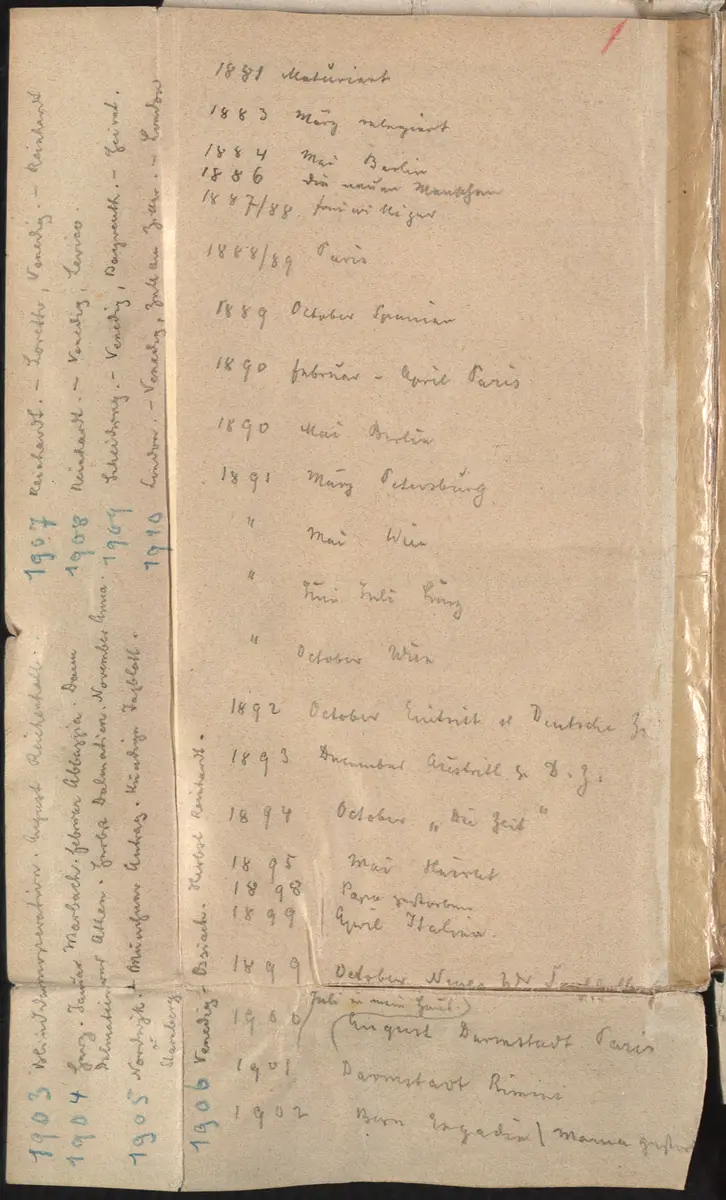 1881 Maturiert
1883 März relegiert
1884 Mai Berlin
1886 Die neuen Menschen
1887/88 Freiwilliger
1888/89 Paris
1889 October Spanien
1890 Februar – April Paris
1890 Mai Berlin
1891 März Petersburg
" Mai Wien
" Juni Juli Linz
" October Wien
1892 October Eintritt Deutsche Z.
1893 December Austritt D. Z.
1894 October „Die Zeit"
1895 Mai Heirat
1898 Papa gestorben
1899 April Italien.
1899 October Neues
Juli in mein Haus.
1900 August Darmstadt Paris
1901 Darmstadt Rimini
1902 Bern Engadin / Mama
1903 Blinddarmoperation. August Reichenhall.
1904 Januar Marbach. Februar Abbazia. Dann
Dalmatien und Athen. Herbst Dalmatien. November Anna.
1905 Nordwijk. Münchner Antrag. Kündige Tagblatt.
Starnberg
1906 Venedig – Ossiach. Herbst Reinhardt.
1907 Reinhardt. – Loretto, Venedig. – Reinhardt
1908 Reinhardt. – Venedig, Levico.
1909 Scheidung. – Venedig, Bayreuth. – Heirat.
1910 London. – Venedig, Zell am Ziller. – London